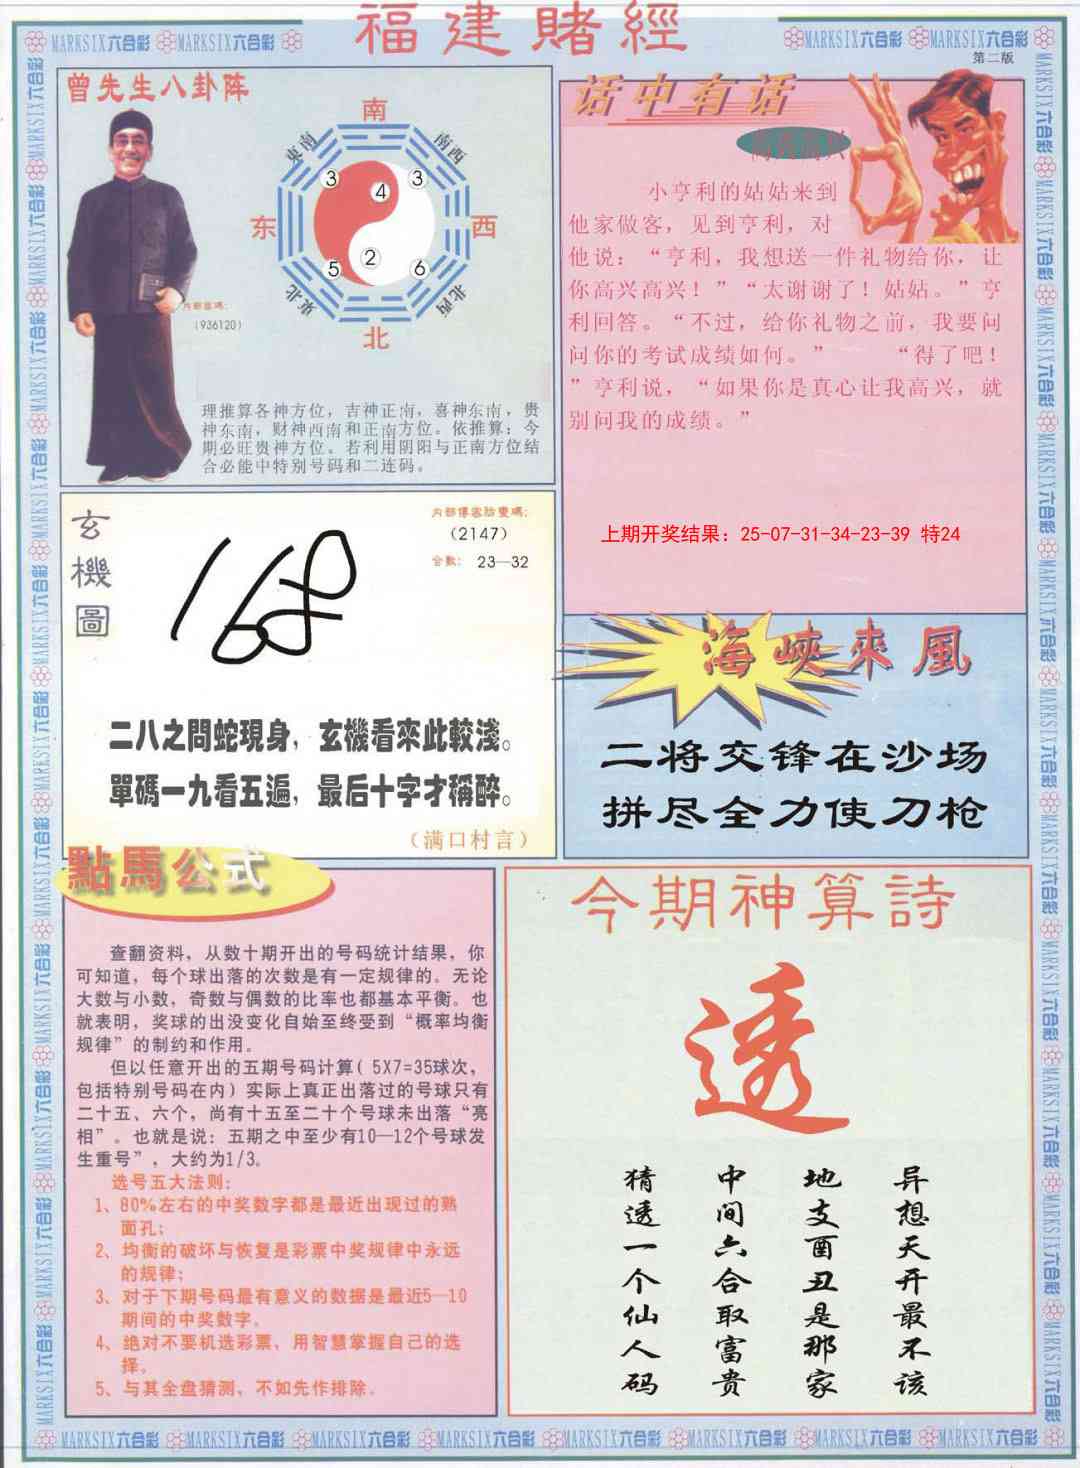 福建賭經
MARKSIX六合彩 MARKSIX六合彩
MARKSIX六合彩 MARKSIX六合彩
第二版
曾先生八卦阵
南
東南
南西
3
4
3
东
西
5
2
6
東北
北西
北
(936120)
理推算各神方位，吉神正南，喜神东南，贵
神东南，财神西南和正南方位。依推算：今
期必旺贵神方位。若利用阴阳与正南方位结
合必能中特别号码和二连码。
话中有话
小亨利的姑姑来到
他家做客，见到亨利，对
他说：“亨利，我想送一件礼物给你，让
你高兴高兴！”“太谢谢了！姑姑。”亨
利回答。“不过，给你礼物之前，我要问
问你的考试成绩如何。”　　“得了吧！
”亨利说，“如果你是真心让我高兴，就
别问我的成绩。”
上期开奖结果：25-07-31-34-23-39 特24
玄機圖
168
(2147)
合數： 23—32
二八之問蛇現身，玄機看來此較淺。
單碼一九看五遍，最后十字才稱醉。
（满口村言）
海峽來風
二将交锋在沙场
拼尽全力使刀枪
點馬公式
查翻资料，从数十期开出的号码统计结果，你
可知道，每个球出落的次数是有一定规律的。无论
大数与小数，奇数与偶数的比率也都基本平衡。也
就表明，奖球的出没变化自始至终受到“概率均衡
规律”的制约和作用。
但以任意开出的五期号码计算( 5X7=35球次，
包括特别号码在内）实际上真正出落过的号球只有
二十五、六个，尚有十五至二十个号球未出落“亮
相”。也就是说：五期之中至少有10—12个号球发
生重号”，大约为1/3。
选号五大法则：
1、80%左右的中奖数字都是最近出现过的熟
面孔；
2、均衡的破坏与恢复是彩票中奖规律中永远
的规律；
3、对于下期号码最有意义的数据是最近5—10
期间的中奖数字。
4、绝对不要机选彩票，用智慧掌握自己的选
择。
5、与其全盘猜测，不如先作排除。
今期神算詩
透
异想天开最不该
地支酉丑是那家
中间六合取富贵
猜透一个仙人码
MARKSIX六合彩 MARKSIX六合彩 MARKSIX六合彩 MARKSIX六合彩 MARKSIX六合彩 MARKSIX六合彩 MARKSIX六合彩 MARKSIX六合彩